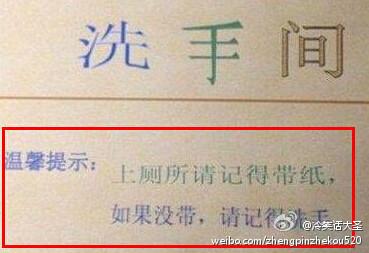 洗手间
温馨提示：上厕所请记得带纸，
如果没带，请记得洗手
@冷笑话大圣
weibo.com/zhengpinzhekou520